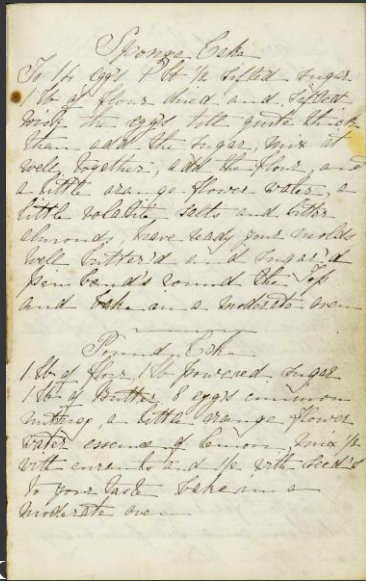 Sponge Cake
To 14 eggs 1 lb ½ sifted sugar
1 lb of flour dried and sifted
Work the eggs till quite thick
than add the sugar, mix it
well together, add the flour, and
a little orange flower water, a
little volatile salts and bitter
almonds, have ready your molds
well butter'd and sugar'd
pin band's round the Top
and bake in a moderate oven
Pound Cake
1 lb of flour, 1 lb powered sugar
1 lb of Butter, 8 eggs cinnamon
nutmeg, a little orange flower
water essence of lemon, mix ½
with currants and ½ with seed's
to your Taste bake in a
moderate oven